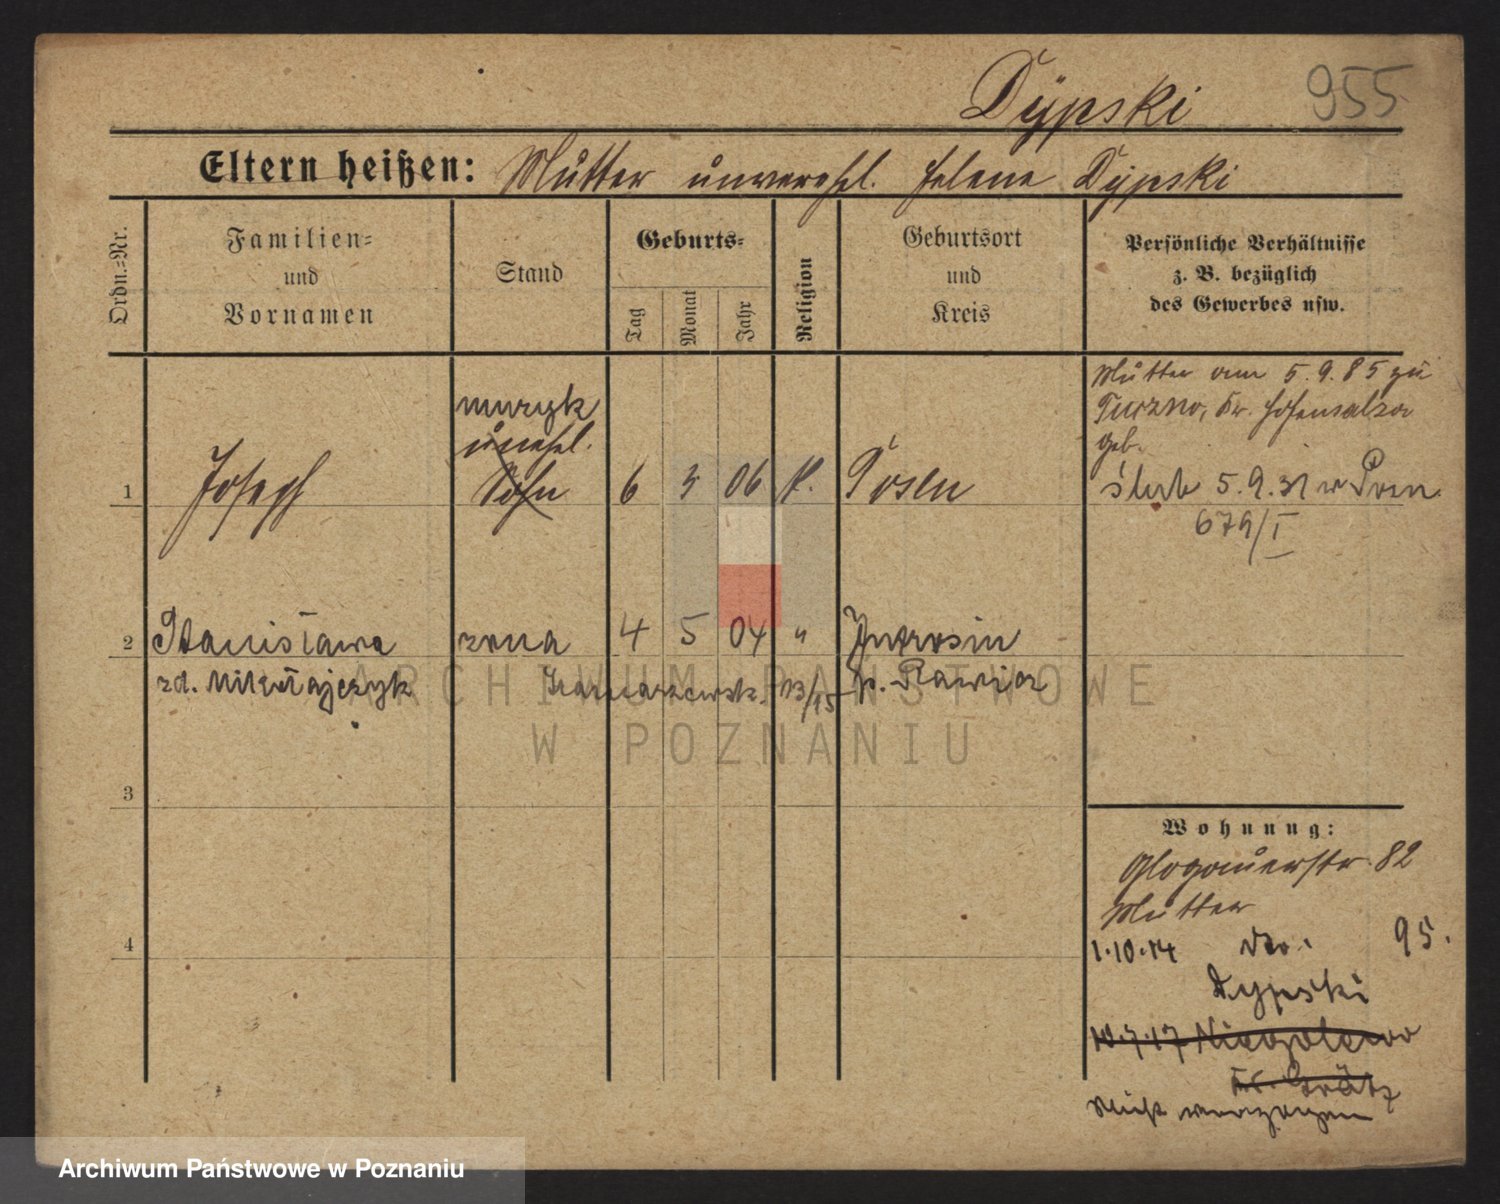 Dÿpski 955
Eltern heißen: Mutter unverehl. Helene Dÿpski
Ordn.-Nr.
Familien-
und
Vornamen
Stand
Geburts-
Tag
Monat
Jahr
Religion
Geburtsort
und
Kreis
Persönliche Verhältnisse
z. B. bezüglich
des Gewerbes usw.
Mutter am 5.9.85 zu
Turzno, Kr. Hohensalza
geb.
muzyk
unehel.
1 Joseph Sohn 6 3 06 k. Posen
ślub 5.9.31 w Pozn.
679/I
2 Stanisława żona 4 5 04 " Jutrosin
zd. Mikołajczyk 13/15 p. Rawicz
3
4
Wohnung:
Glogauerstr. 82
Mutter
1.10.14 do. 95.
Dypski
10.7.17 Niegolewo
Kr. Grätz
nicht verzogen
ARCHIWUM PAŃSTWOWE
W POZNANIU
Archiwum Państwowe w Poznaniu